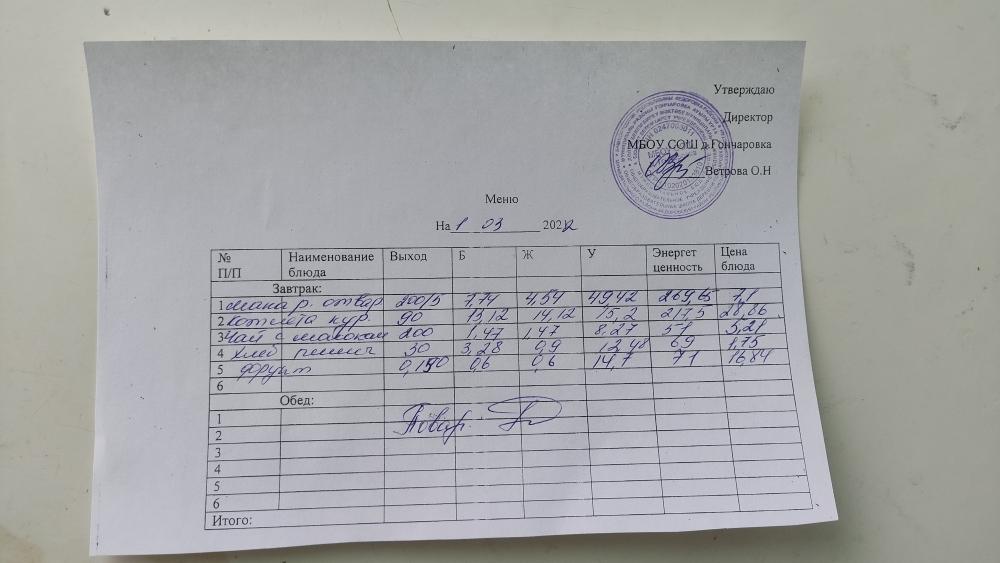 Утверждаю
Директор
МБОУ СОШ д.Гончаровка
Ветрова О.Н
Меню
На 1 03 2022
№ П/П Наименование блюда Выход Б Ж У Энергет ценность Цена блюда
Завтрак:
1 отвар 200/5 7,74 4,54 49,42 269,65 7,1
2 котлета кур. 90 13,12 14,12 15,2 217,5 28,06
3 Чай с молоком 200 1,47 1,47 8,27 51 5,21
4 хлеб 30 3,28 0,9 12,48 69 1,75
5 фрукт 0,150 0,6 0,6 14,7 71 16,84
6
Обед:
1
2 Повар:
3
4
5
6
Итого: